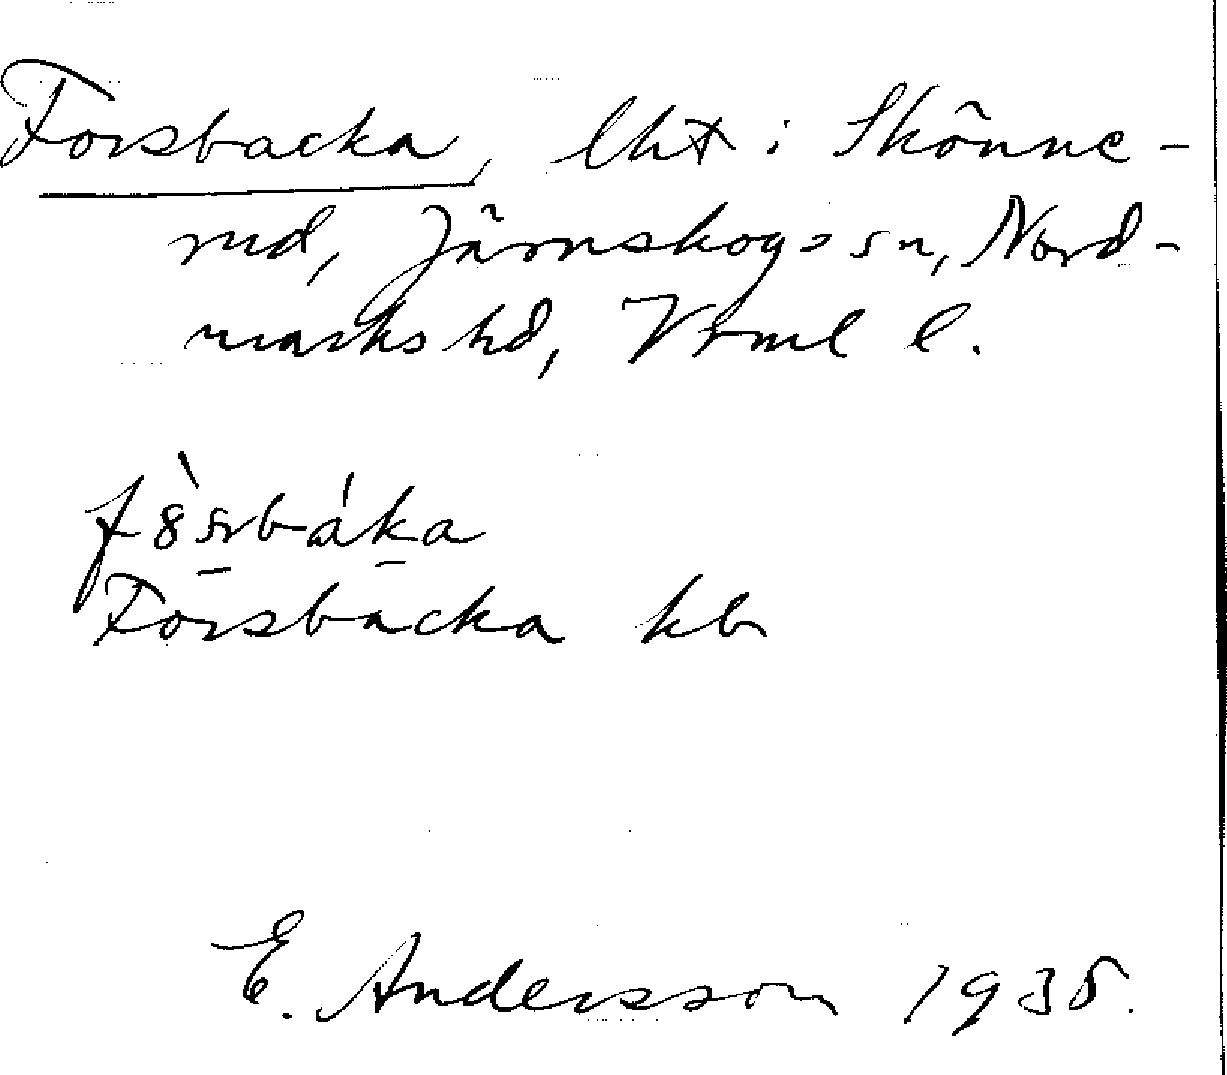 Forsbacka, lht i Skönne-
rud, Järnskogs sn, Nord-
marks hd, Vrml l.
Forsbacka kb
E. Andersson 1935.